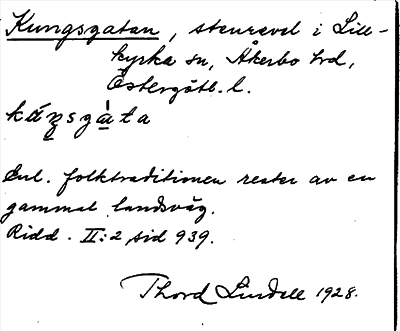 Kungsgatan, stenrevel i Lill-
kyrka sn, Åkerbo hd,
Östergötl. l.
kúŋsgàta
Enl. folktraditionen rester av en
gammal landsväg.
Ridd. II:2, sid 939.
Thord Lindell 1928.